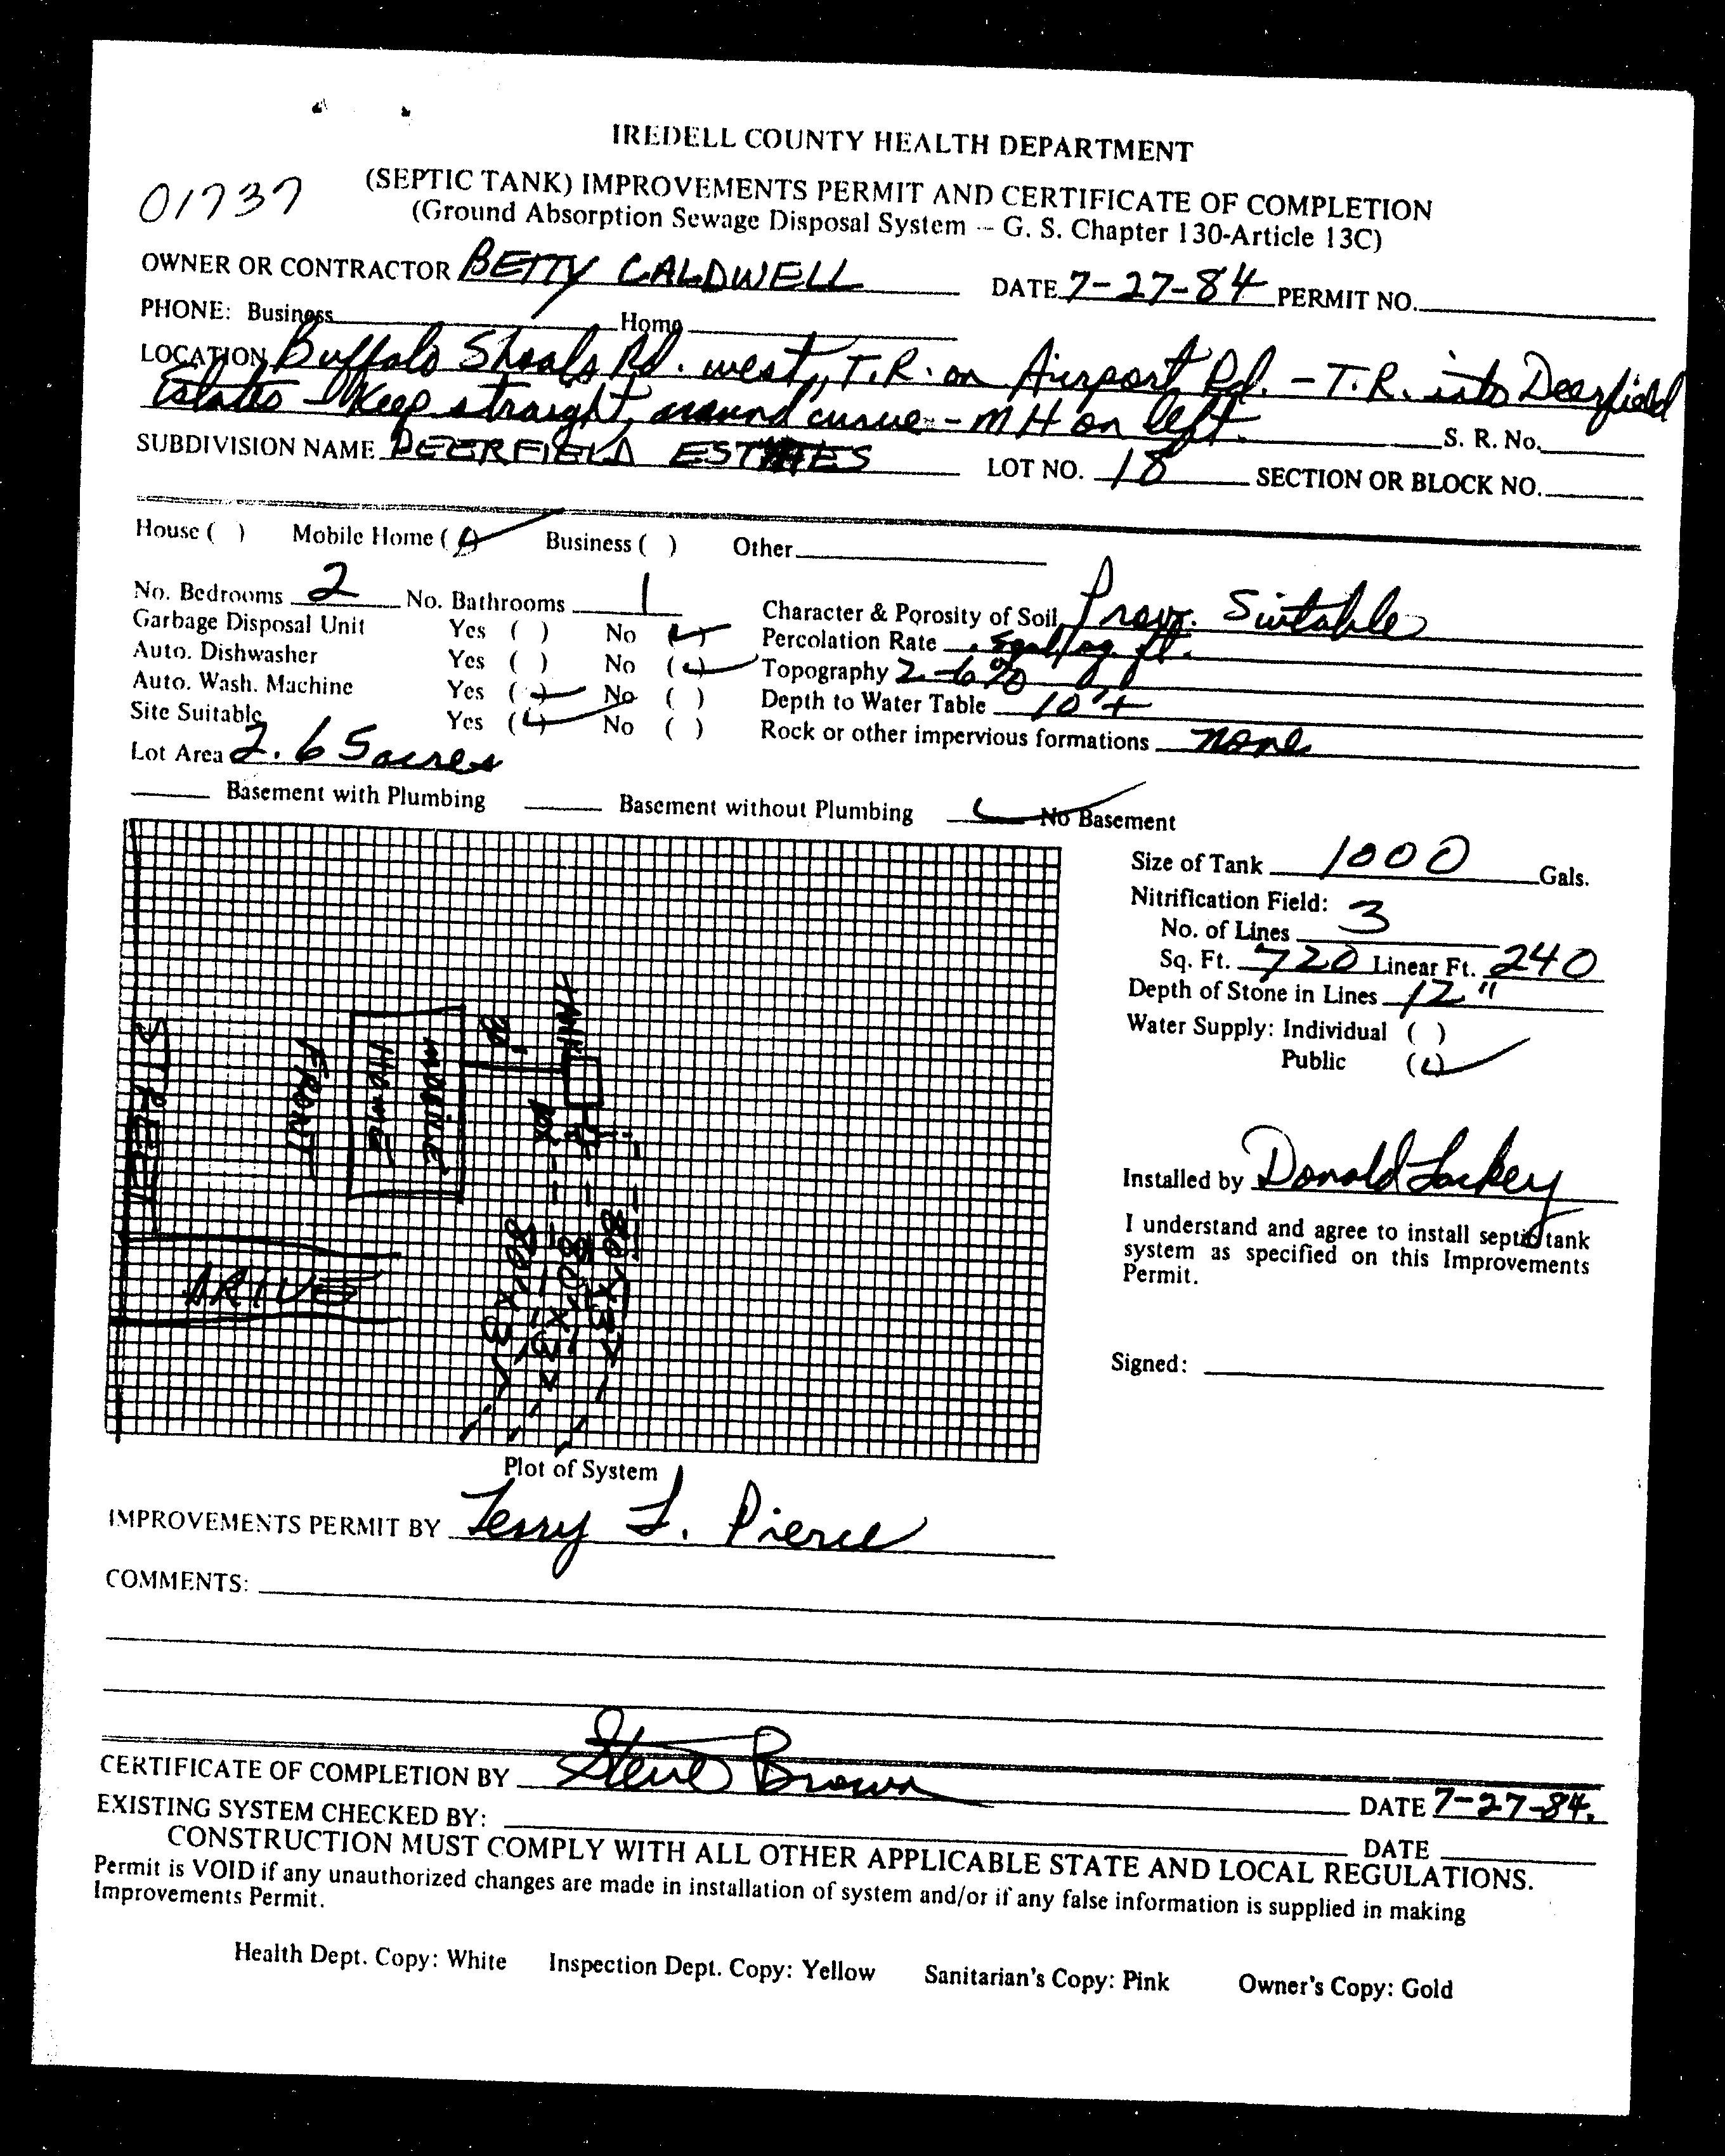 IREDELL COUNTY HEALTH DEPARTMENT
01737
(SEPTIC TANK) IMPROVEMENTS PERMIT AND CERTIFICATE OF COMPLETION
(Ground Absorption Sewage Disposal System -- G. S. Chapter 130-Article 13C)
OWNER OR CONTRACTOR BETTY CALDWELL DATE 7-27-84 PERMIT NO.
PHONE: Business Home
LOCATION Buffalo Shoals Rd. west, T.R. on Airport Rd. - T.R. into Deerfield
Estates - Keep straight, around curve - MH on left.
S. R. No.
SUBDIVISION NAME DEERFIELD ESTATES LOT NO. 18 SECTION OR BLOCK NO.
House ( ) Mobile Home ( ) Business ( ) Other
No. Bedrooms 2 No. Bathrooms 1 Character & Porosity of Soil Prov. Suitable
Garbage Disposal Unit Yes ( ) No (✓) Percolation Rate .5gal/sq. ft.
Auto. Dishwasher Yes ( ) No (✓) Topography 2-6%
Auto. Wash. Machine Yes (✓) No ( ) Depth to Water Table 10'+
Site Suitable Yes (✓) No ( ) Rock or other impervious formations none
Lot Area 2.65 acres
Basement with Plumbing Basement without Plumbing ✓ No Basement
Size of Tank 1000 Gals.
Nitrification Field:
No. of Lines 3
Sq. Ft. 720 Linear Ft. 240
Depth of Stone in Lines 12"
Water Supply: Individual ( )
Public (✓)
STREET
FRONT
MOBILE
HOME
TANK
BOX
80' x 3'
80' x 3'
80' x 3'
DRIVE
Installed by Donald Lackey
I understand and agree to install septic tank
system as specified on this Improvements
Permit.
Signed:
Plot of System
IMPROVEMENTS PERMIT BY Terry L. Pierce
COMMENTS:
CERTIFICATE OF COMPLETION BY Steve Brown DATE 7-27-84.
EXISTING SYSTEM CHECKED BY: DATE
CONSTRUCTION MUST COMPLY WITH ALL OTHER APPLICABLE STATE AND LOCAL REGULATIONS.
Permit is VOID if any unauthorized changes are made in installation of system and/or if any false information is supplied in making
Improvements Permit.
Health Dept. Copy: White Inspection Dept. Copy: Yellow Sanitarian's Copy: Pink Owner's Copy: Gold